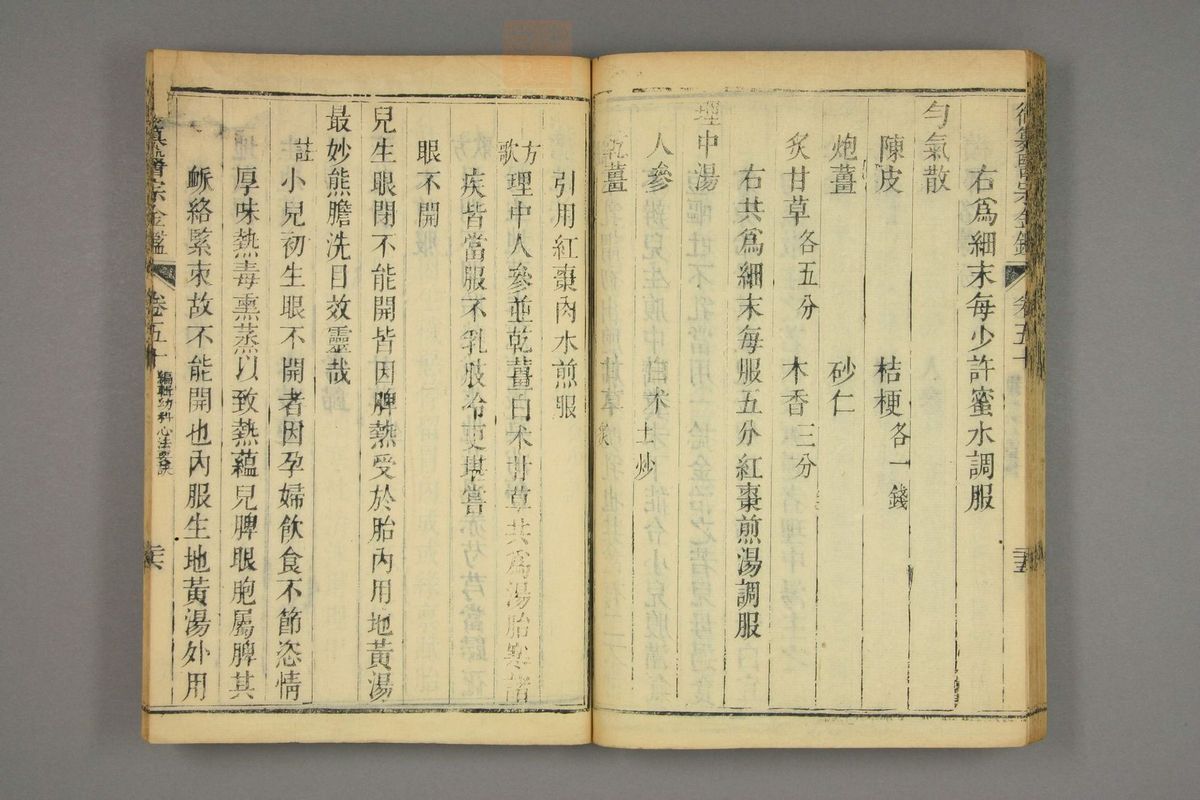 右爲細末每少許蜜水調服
勻氣散
陳皮 桔梗各一錢
炮薑 砂仁
炙甘草各五分 木香三分
右共爲細末每服五分紅棗煎湯調服
理中湯
人參 白术土炒
乾薑 甘草炙
引用紅棗肉水煎服
方歌 理中人參並乾薑白术甘草共爲湯胎寒諸
疾皆當服不乳肢冷更堪嘗
眼不開
兒生眼閉不能開皆因脾熱受於胎內用地黃湯
最妙熊膽洗目效靈哉
註 小兒初生眼不開者因孕婦飲食不節恣情
厚味熱毒熏蒸以致熱蘊兒脾眼胞屬脾其
脈絡緊束故不能開也內服生地黃湯外用
醫宗金鑑 卷五十 編輯幼科心法要訣 二六